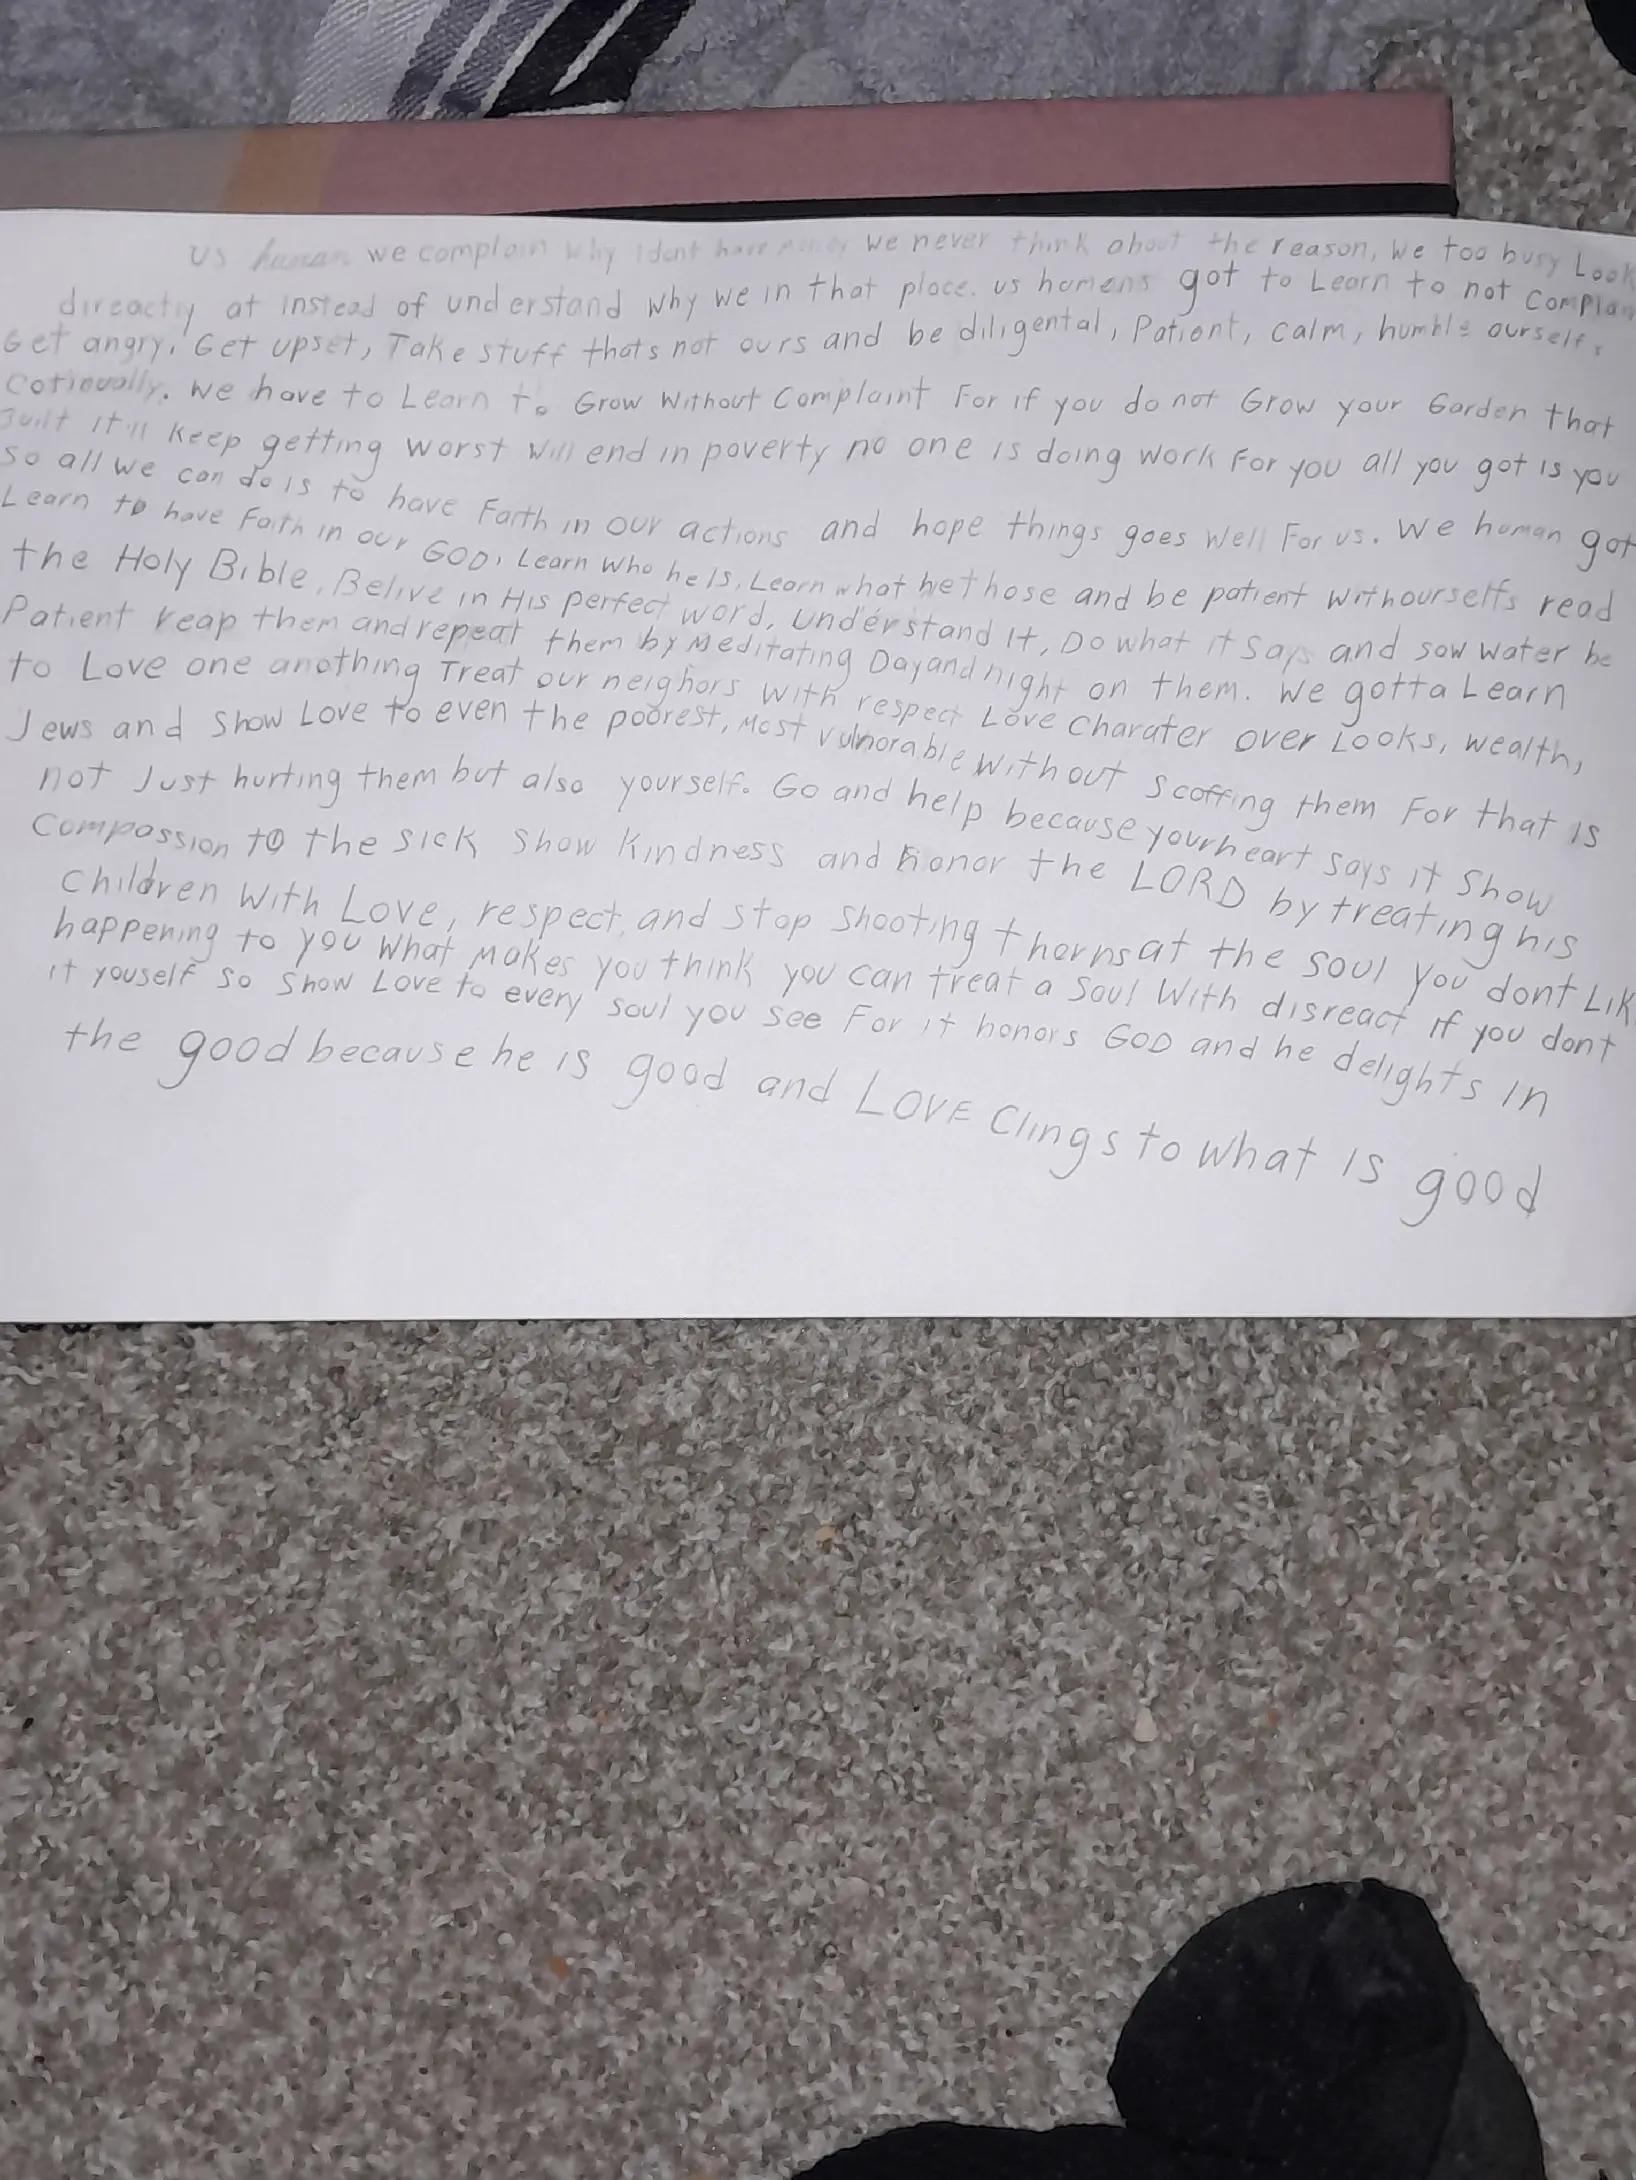 us human we complain why I dont have money we never think about the reason, We too busy Look
direactly at instead of understand why we in that place. us humans got to Learn to not complain
Get angry, Get upset, Take stuff thats not ours and be diligental, Patient, calm, humble ourself,
Cotinually. We have to Learn to Grow Without Complaint For if you do not Grow your Garden that
Built it'll keep getting worst Will end in poverty no one is doing work For you all you got is you
so all we can do is to have Faith in our actions and hope things goes well For us. We human got
Learn to have Faith in our GOD, Learn Who he Is, Learn what he those and be patient withourselfs read
the Holy Bible, Belive in His perfect word, understand It, Do what it says and sow water be
Patient reap them and repeat them by Meditating Day and night on them. We gotta Learn
to Love one anothing Treat our neighors with respect Love Charater over Looks, wealth,
Jews and Show Love to even the poorest, Most vulnorable without scoffing them For that is
not Just hurting them but also yourself. Go and help because your heart says it Show
Compassion to the sick Show Kindness and honor the LORD by treating his
Children With Love, respect, and stop Shooting thorns at the soul you dont Lik
happening to you What makes you think you can treat a soul With disreact if you dont
it youself so Show Love to every soul you see For it honors GOD and he delights in
the good because he is good and LOVE Clings to what is good